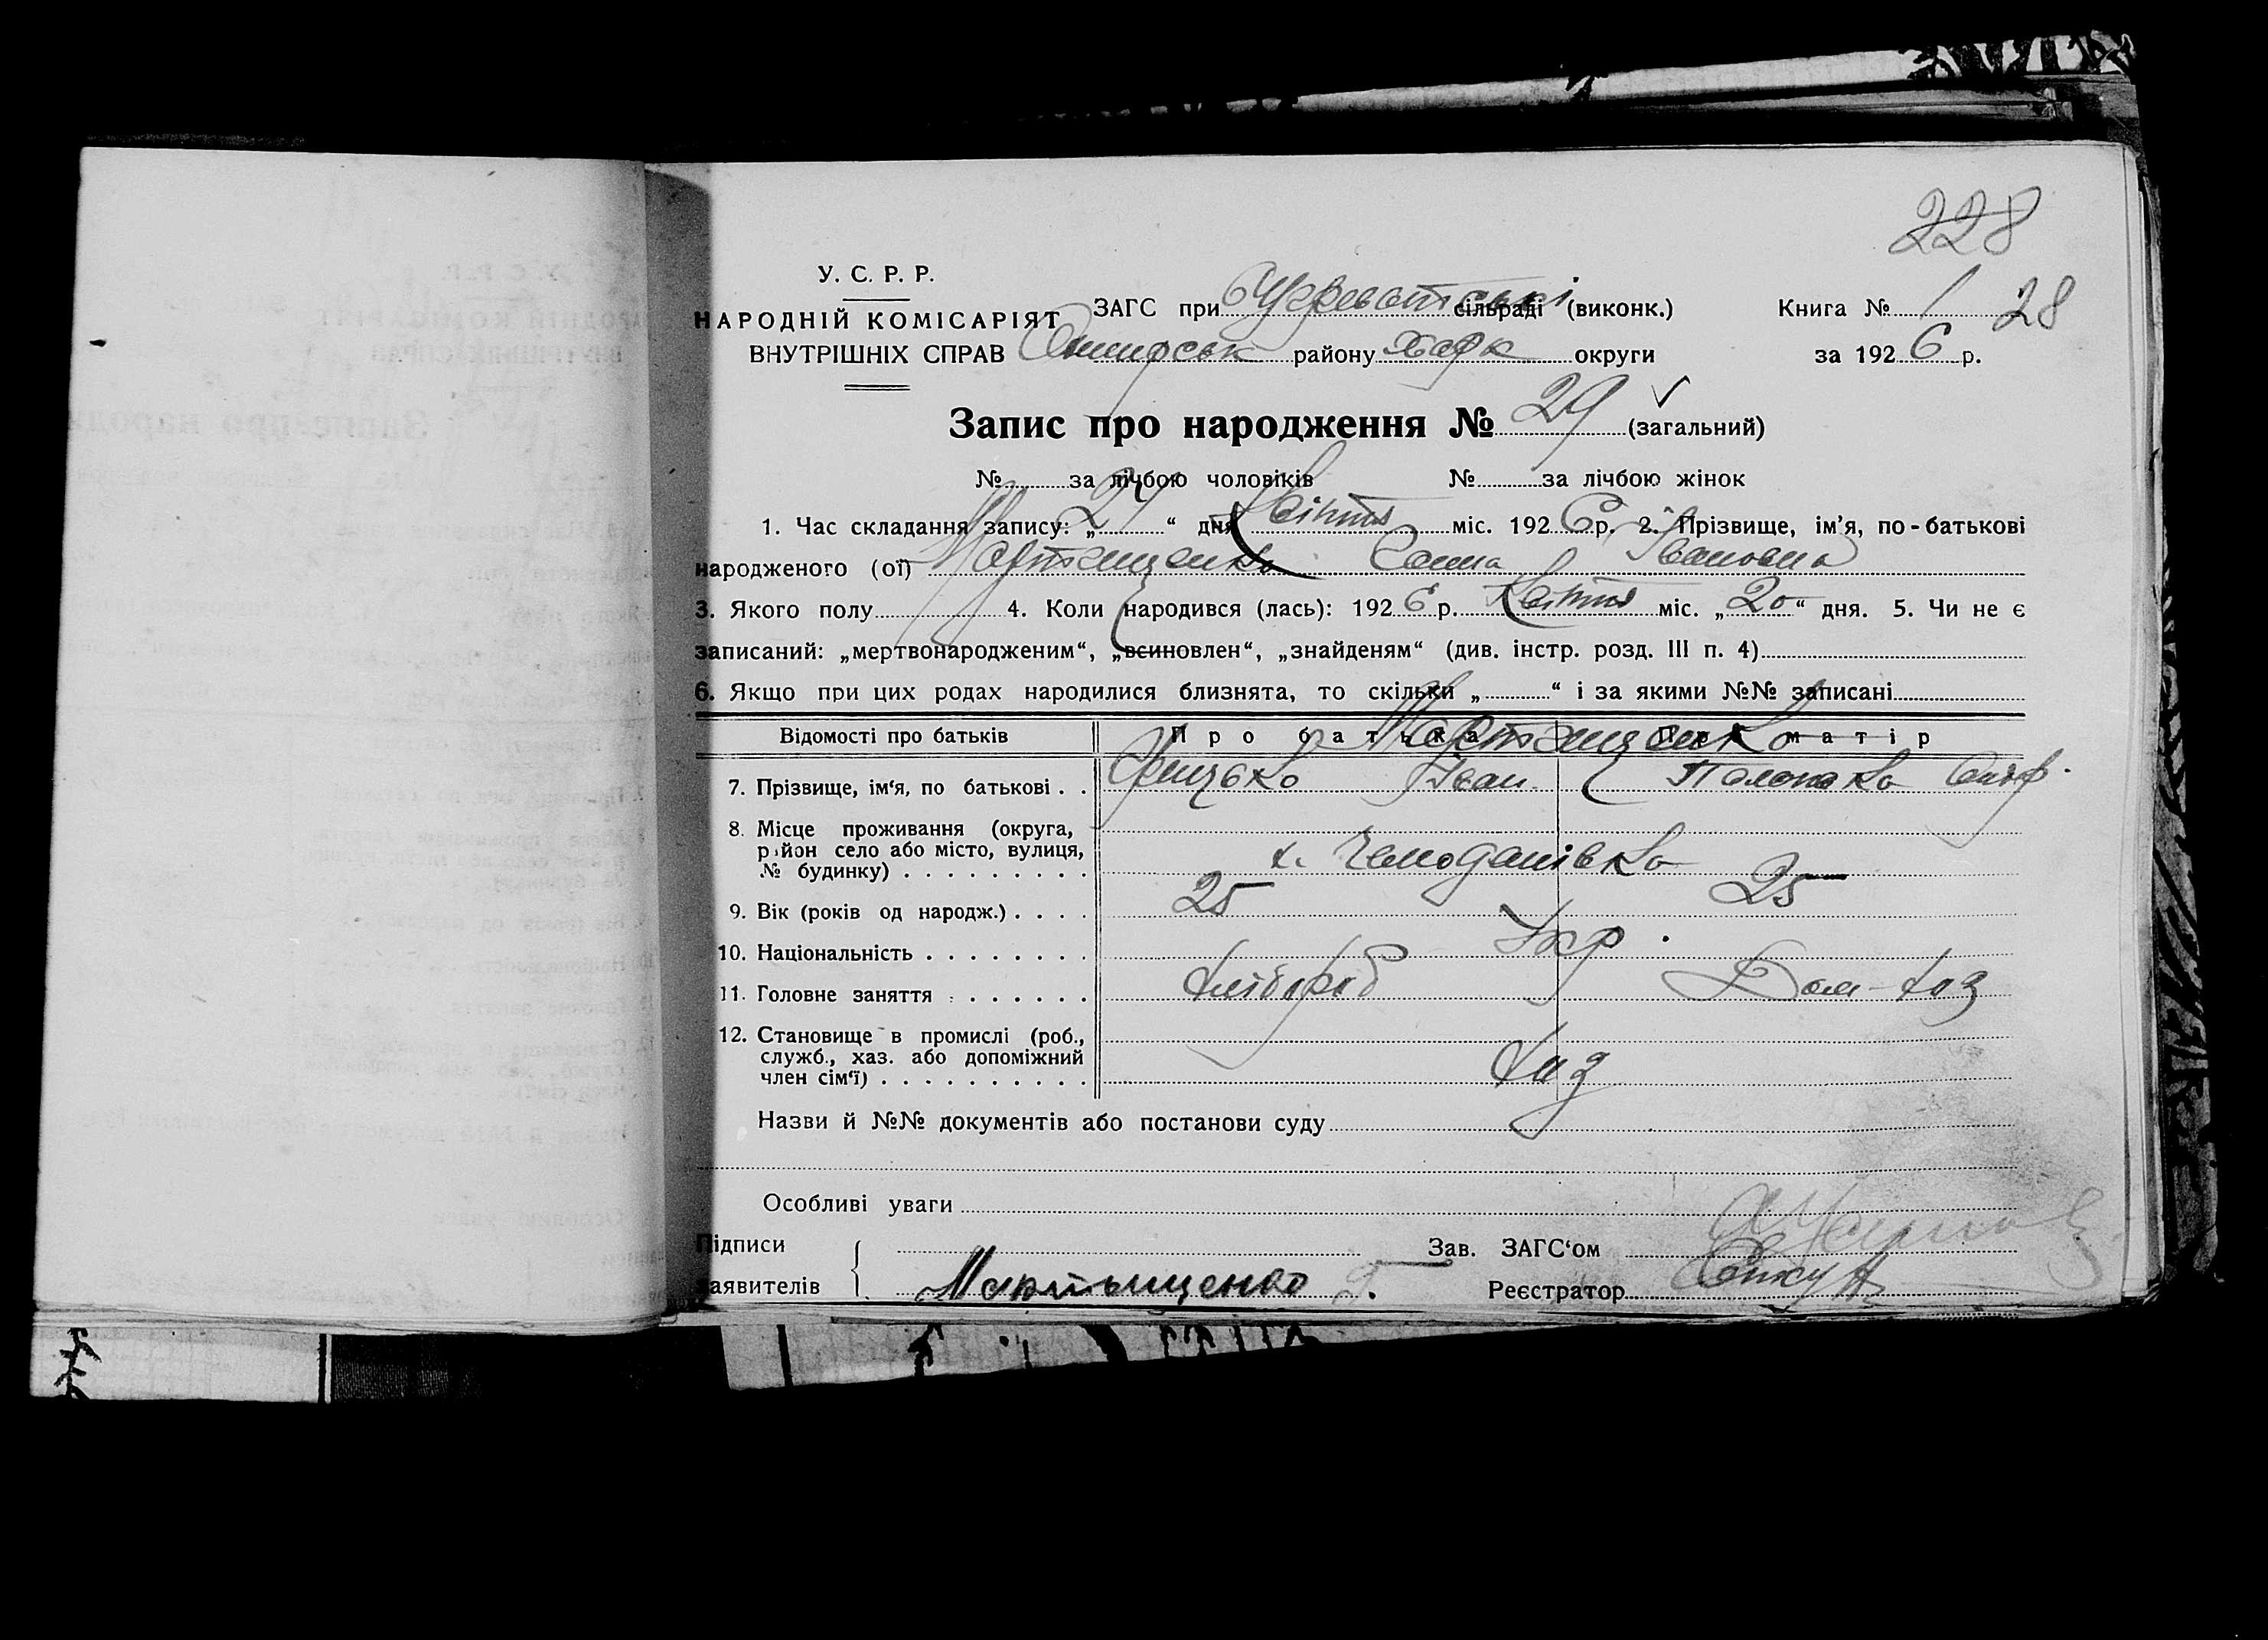 228
У. С. Р. Р.
НАРОДНІЙ КОМІСАРІЯТ
ВНУТРІШНІХ СПРАВ
ЗАГС при сільраді (виконк.)
району Харк округи
Книга № 1 28
за 1926 р.
Запис про народження № 29 (загальний)
№ за лічбою чоловіків № за лічбою жінок
1. Час складання запису: „24“ дня Квітня міс. 1926 р. 2. Прізвище, ім’я, по-батькові
народженого (ої) Ганна Івановна
3. Якого полу 4. Коли народився (лась): 1926 р. Квітня міс. „20“ дня. 5. Чи не є
записаний: „мертвонародженим“, „всиновлен“, „знайденям“ (див. інстр. розд. III п. 4)
6. Якщо при цих родах народилися близнята, то скільки „ “ і за якими №№ записані
Відомості про батьків Про батька Про матір
7. Прізвище, ім‘я, по батькові . . Грицько Іван.
8. Місце проживання (округа,
район село або місто, вулиця,
№ будинку) . . . . . . . . . х. Чемоданівка
9. Вік (років од народж.) . . . . 25 25
10. Національність . . . . . . . . Укр.
11. Головне заняття . . . . . . . Хлібороб Дом-хаз
12. Становище в промислі (роб.,
служб., хаз. або допоміжний
член сім‘ї) . . . . . . . . . . Хаз
Назви й №№ документів або постанови суду
Особливі уваги
Підписи
заявителів Мартыщенко Г.
Зав. ЗАГС‘ом
Реєстратор